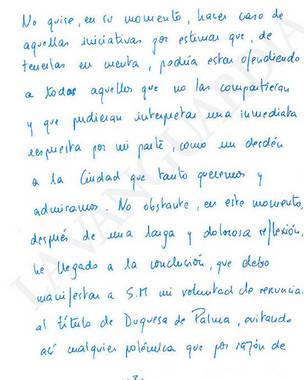 No quise, en su momento, hacer caso de
aquellas iniciativas por estimar que, de
tenerlas en cuenta, podría estar ofendiendo
a todos aquellos que no las compartieran
y que pudieran interpretar una inmediata
respuesta por mi parte, como un desdén
a la Ciudad que tanto queremos y
admiramos. No obstante, en este momento,
después de una larga y dolorosa reflexión,
he llegado a la conclusión, que debo
manifestar a S.M mi voluntad de renuncia
al título de Duquesa de Palma, evitando
así cualquier polémica que por razón de
LA VANGUARDIA